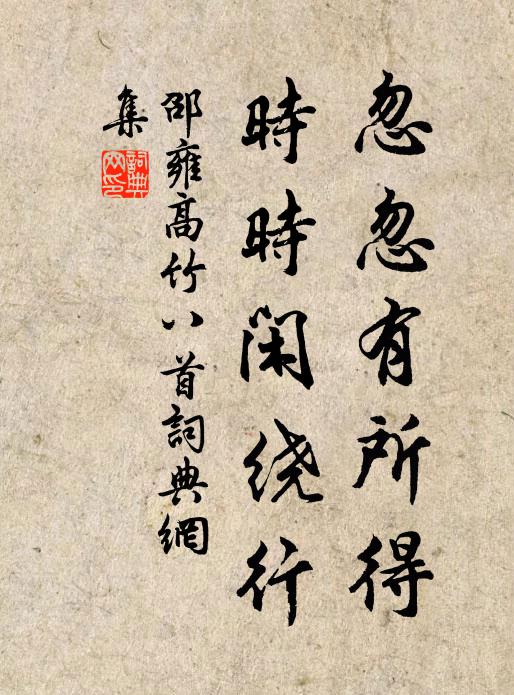 忽忽有所得
時時閑绕行
邵雍高竹八首詞典網
集
詞典
网印